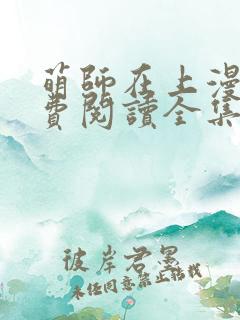 萌師在上漫
費閱讀全集
彼岸君墨
未经同意禁止转载